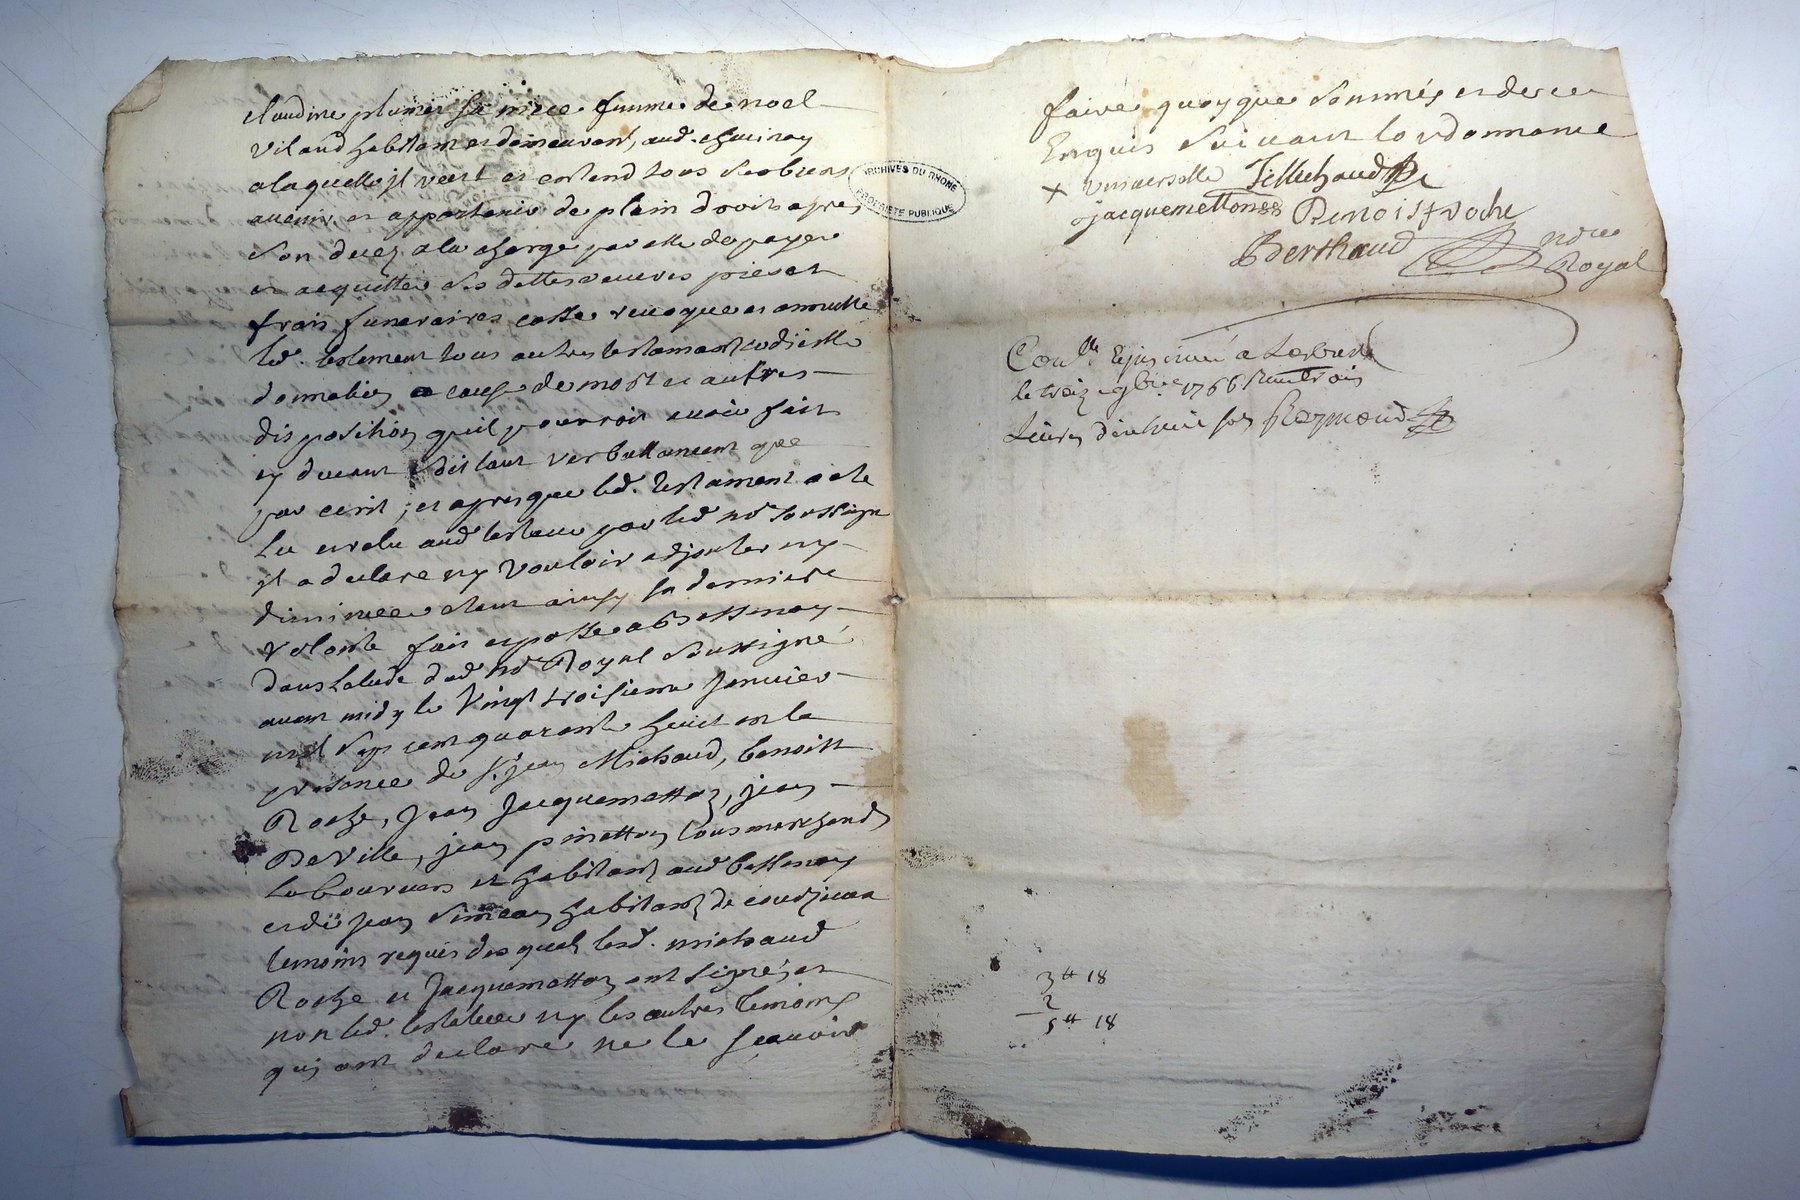 claudine plumet sa niece femme de noel
Vilaud habitant et demeurant, aud. chevinay
a laquelle il veut et entend tous ses biens
avenir et appartenir de plein droit apres
son deces a la charge par elle de payer
et acquitter ses dettes œuvres pies et
frais funeraires casse revoque et annulle
led. testement tous autres testament codicille
donnation a cause de mort et autres
disposition quil pourroit avoir fait
cy devant soit tant verballement que
par ecrit ; et apres que led. testament a ete
lu et relu aud testateur par led nore soussigne
il a declare ny vouloir adjouter ny
diminuer etant ainsy sa derniere
volonte fait et passe a Bessenay
dans letude dud nore Royal soussigné
avant midy le vingt troisieme janvier
mil sept cent quarante huit en la
presence de sr. jean Michaud, benoist
Roche, Jean Jacquemetton, jean
Deville, jean pinetton tous marchands
laboureurs et habitants aud bessenay
et de jean simean habitant de courzieu
temoins requis des quels lesd. michaud
Roche et Jacquemetton ont signé, et
non led. testateur ny les autres temoins
qui ont declare ne le scavoir
faire quoyque sommés et de ce
Enquis suivant lordonnance
x universelle Michaud
jacquemetton Benoist roche
Berthaud nore
Royal
ARCHIVES DU RHONE
PROPRIETE PUBLIQUE
Conlle
le treize 9bre 1766
Raymond
3 tt 18
2
5 tt 18